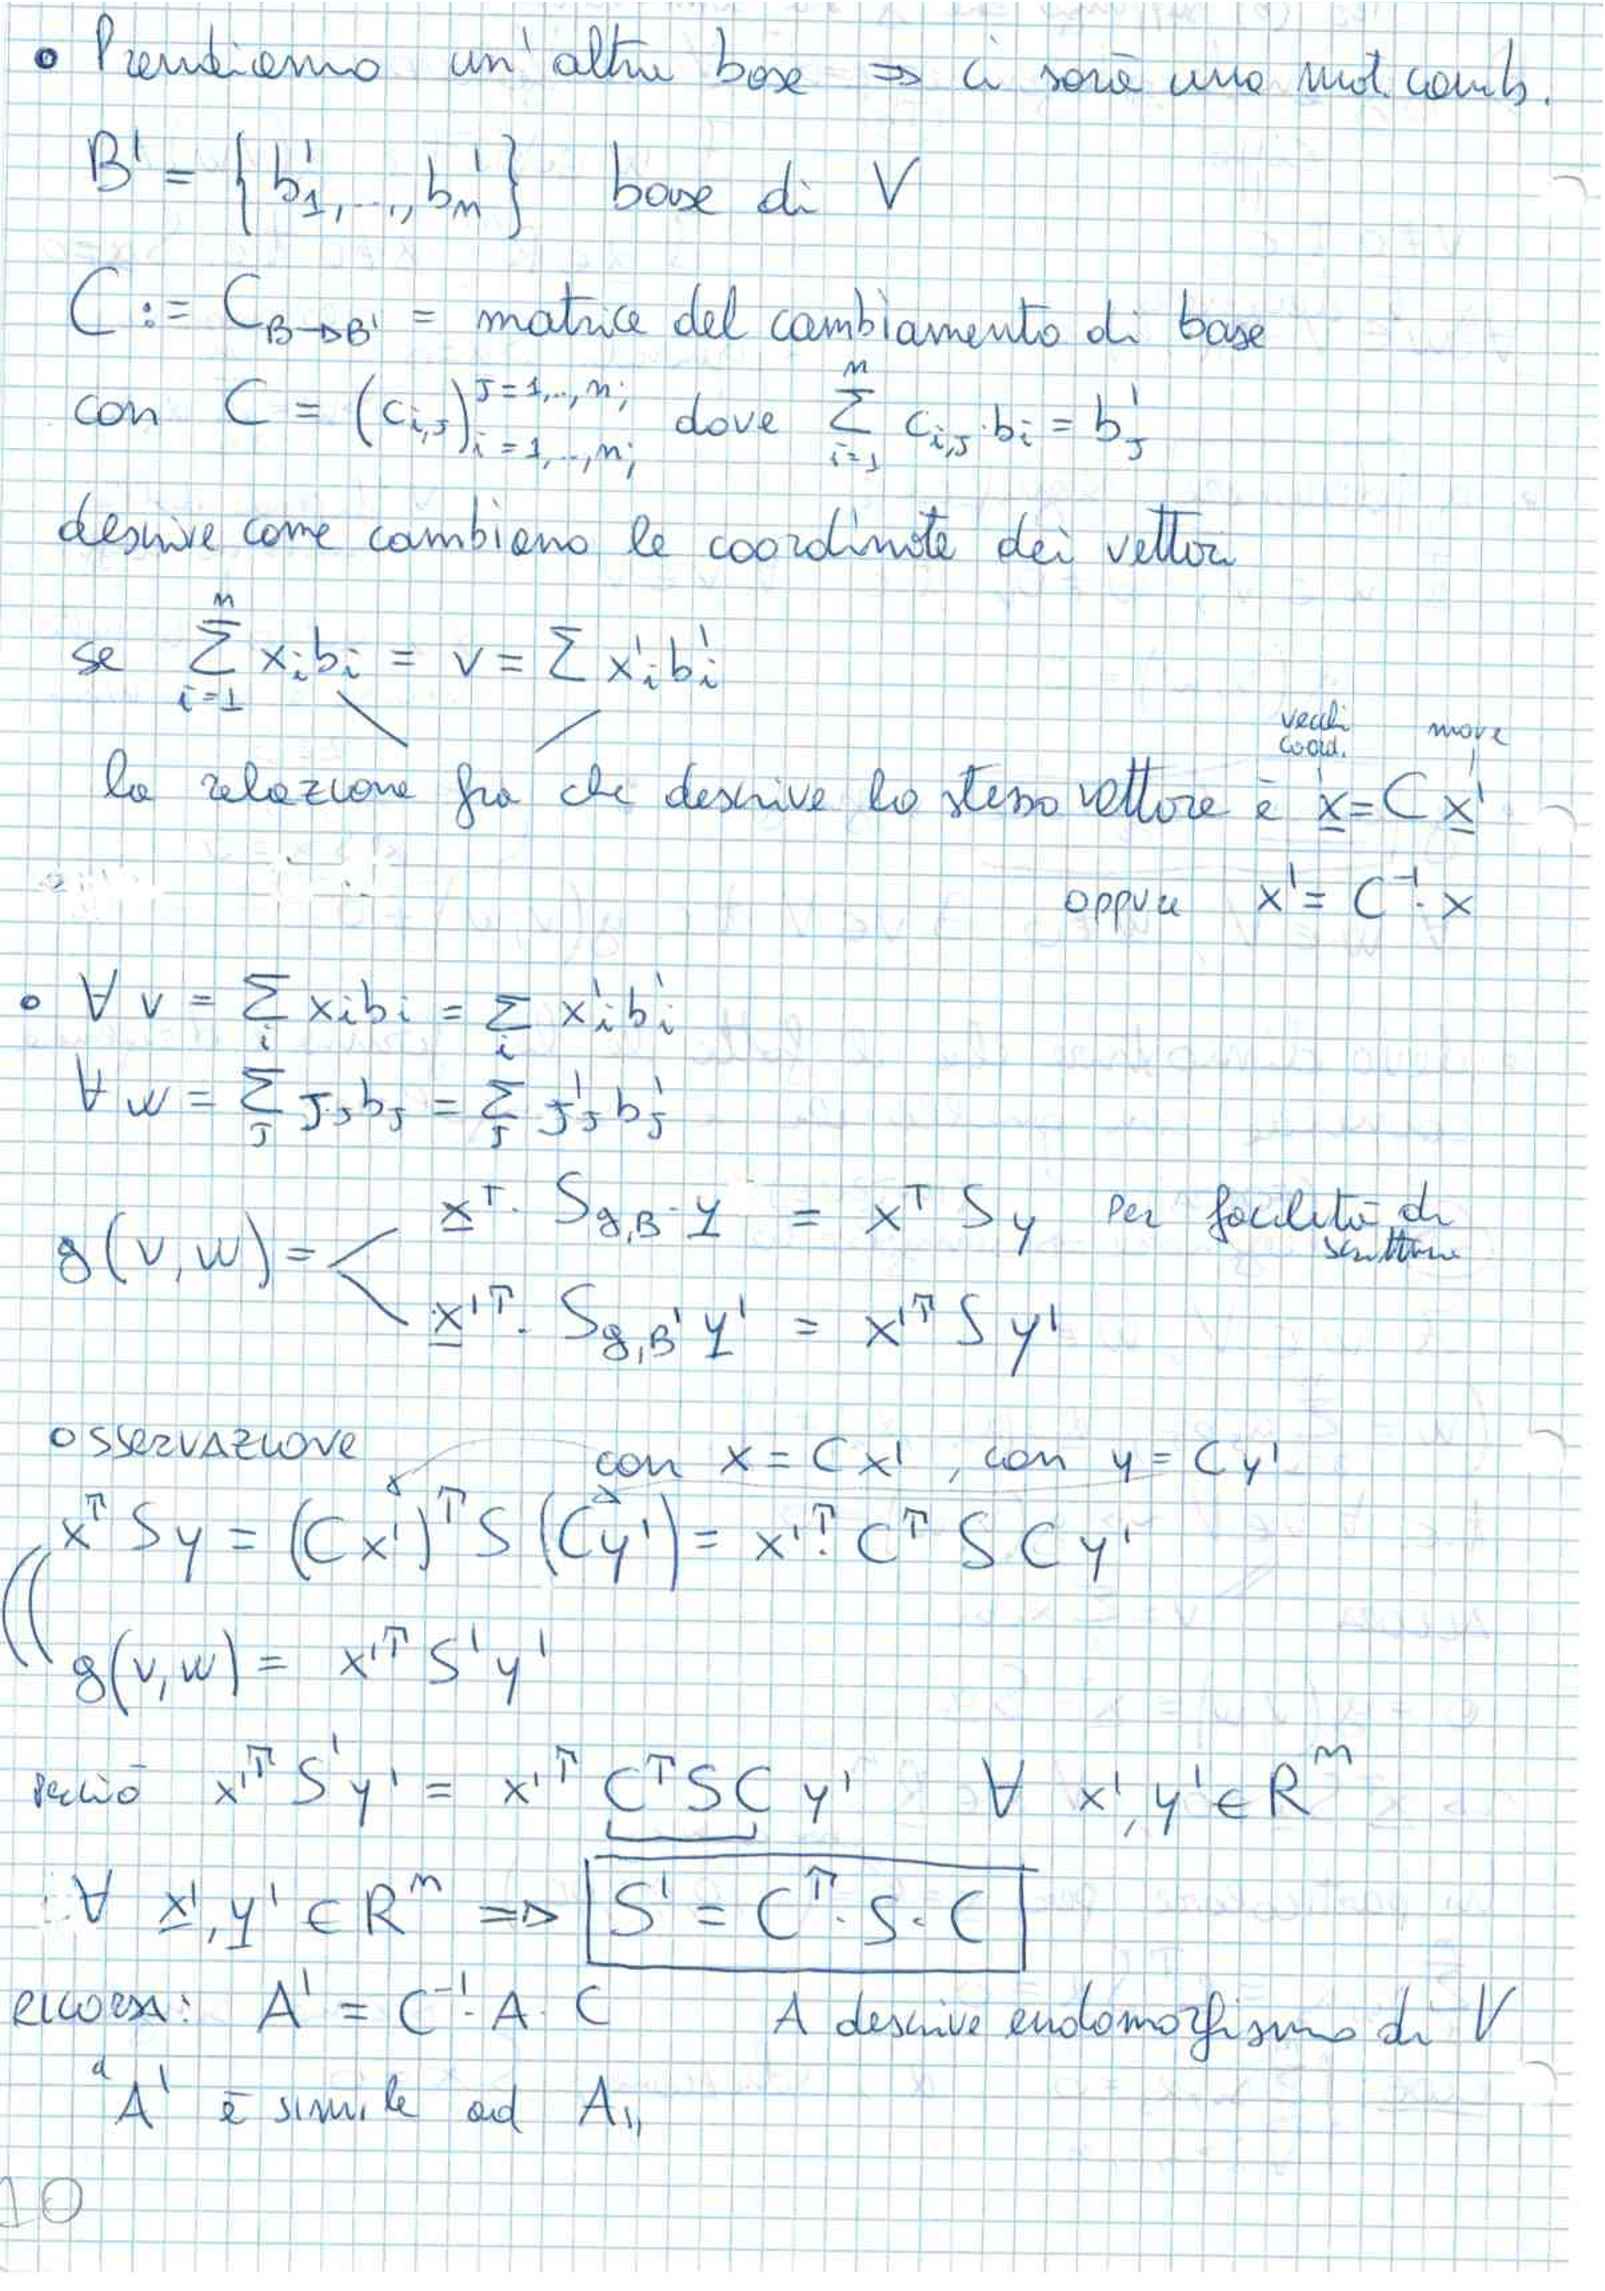 • Prendiamo un'altra base => ci sarà una mat. camb.
B' = {b'1, ..., b'n} base di V
C := C B→B' = matrice del cambiamento di base
con C = (c i,j) j=1,..,n; i=1,..,n; dove Σ i=1 n c i,j · bi = b'j
descrive come cambiano le coordinate dei vettori
se Σ i=1 n xi bi = v = Σ x'i b'i
vecchie coord. nuove
la relazione fra che descrive lo stesso vettore è x = C x'
oppure x' = C⁻¹ · x
• ∀ v = Σ i xi bi = Σ i x'i b'i
∀ w = Σ j yj bj = Σ j y'j b'j
g(v,w) = < x^T · S g,B · y = x^T S y per facilità di scrittura
x'^T · S g,B' y' = x'^T S y'
OSSERVAZIONE con x = Cx', con y = Cy'
x^T S y = (Cx')^T S (Cy') = x'^T · C^T S C y'
g(v,w) = x'^T S' y'
perciò x'^T S' y' = x'^T C^T S C y' ∀ x', y' ∈ R^n
∀ x', y' ∈ R^n => S' = C^T · S · C
RICORDA: A' = C⁻¹ · A · C A descrive endomorfismo di V
A' è simile ad A
10